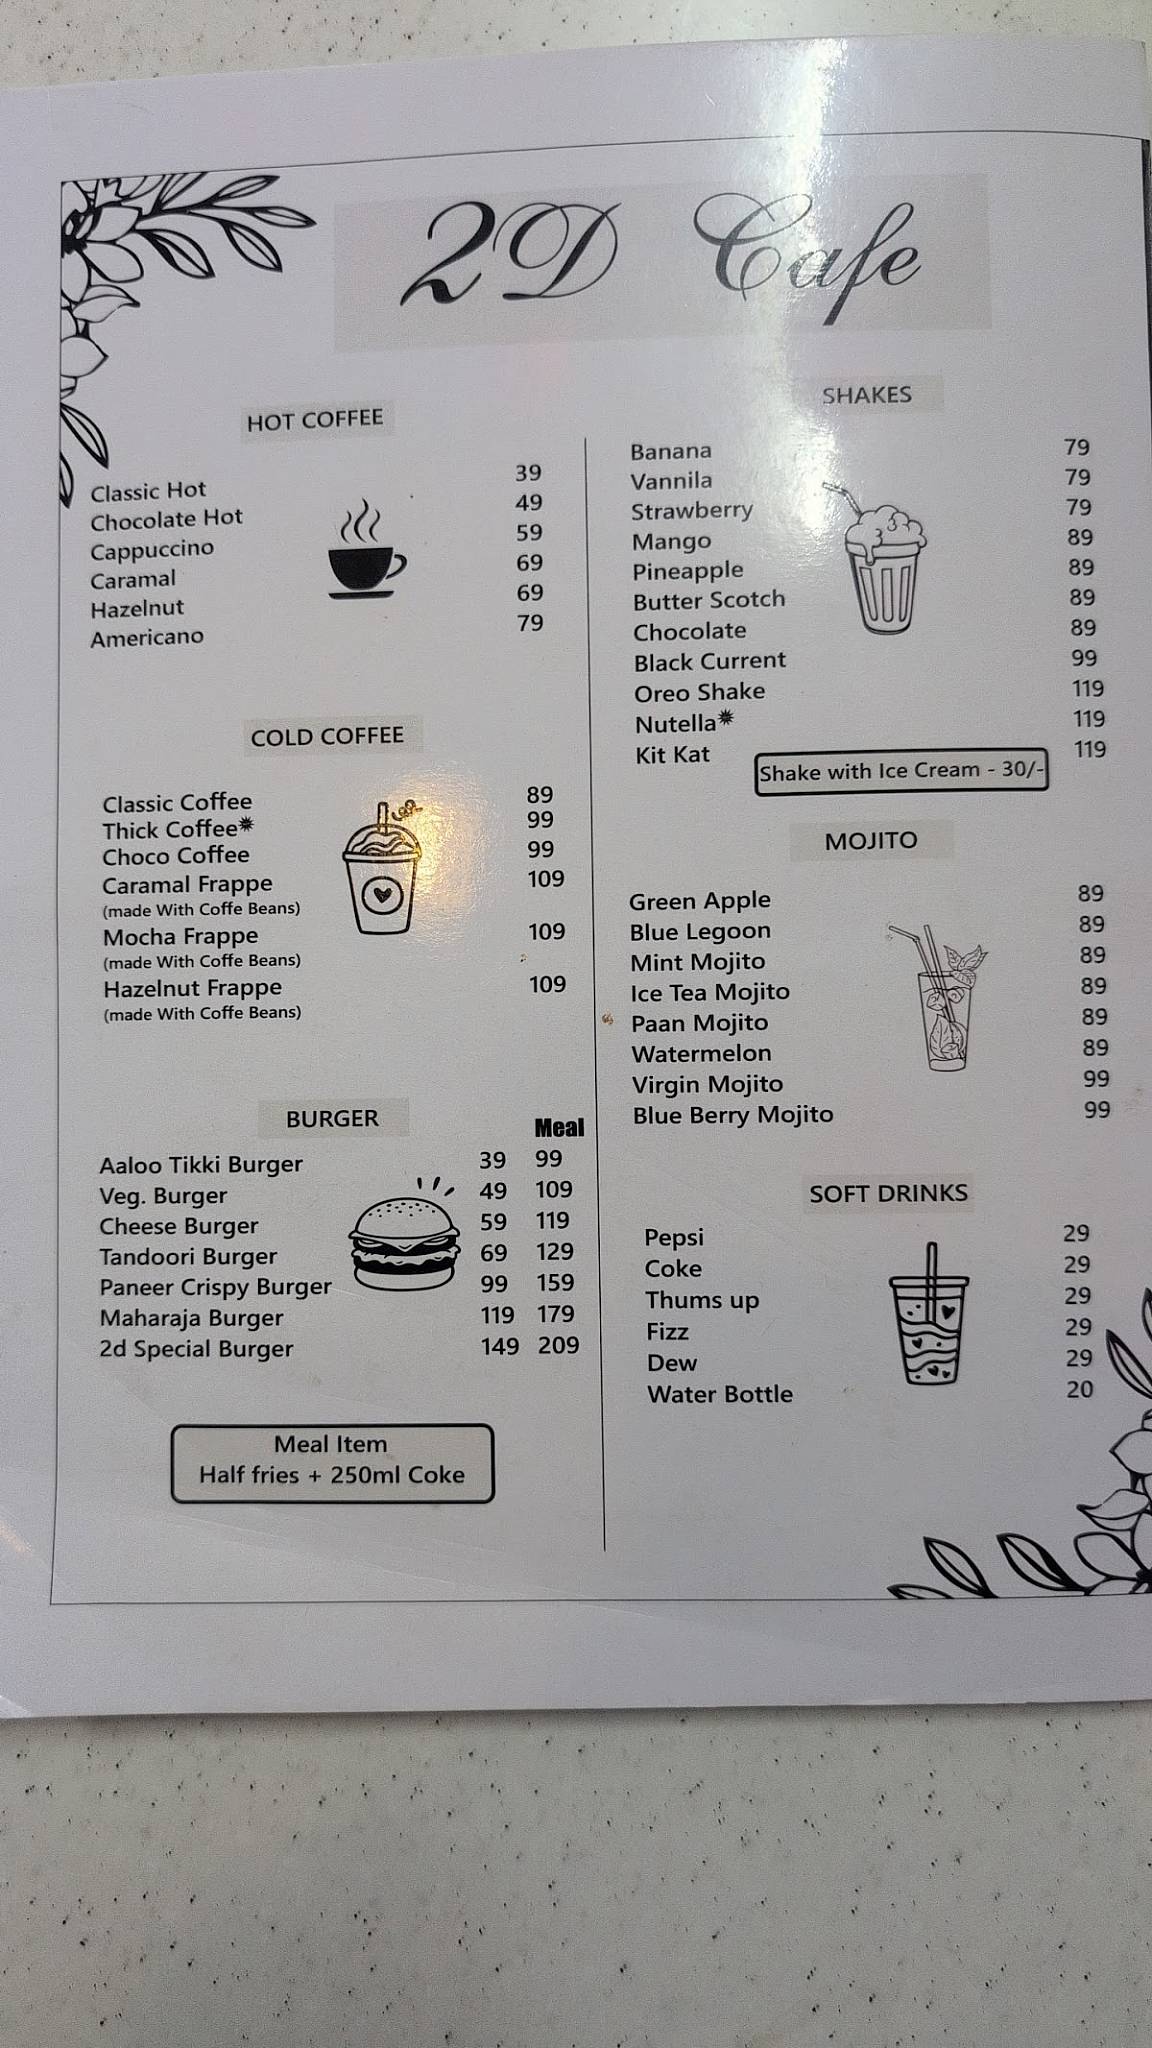 2D Cafe
HOT COFFEE
Classic Hot 39
Chocolate Hot 49
Cappuccino 59
Caramal 69
Hazelnut 69
Americano 79
COLD COFFEE
Classic Coffee 89
Thick Coffee✹ 99
Choco Coffee 99
Caramal Frappe 109
(made With Coffe Beans)
Mocha Frappe 109
(made With Coffe Beans)
Hazelnut Frappe 109
(made With Coffe Beans)
BURGER Meal
Aaloo Tikki Burger 39 99
Veg. Burger 49 109
Cheese Burger 59 119
Tandoori Burger 69 129
Paneer Crispy Burger 99 159
Maharaja Burger 119 179
2d Special Burger 149 209
Meal Item
Half fries + 250ml Coke
SHAKES
Banana 79
Vannila 79
Strawberry 79
Mango 89
Pineapple 89
Butter Scotch 89
Chocolate 89
Black Current 99
Oreo Shake 119
Nutella✹ 119
Kit Kat 119
Shake with Ice Cream - 30/-
MOJITO
Green Apple 89
Blue Legoon 89
Mint Mojito 89
Ice Tea Mojito 89
Paan Mojito 89
Watermelon 89
Virgin Mojito 99
Blue Berry Mojito 99
SOFT DRINKS
Pepsi 29
Coke 29
Thums up 29
Fizz 29
Dew 29
Water Bottle 20